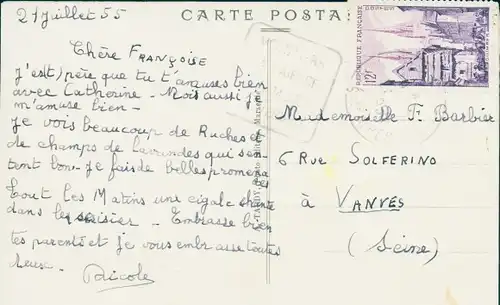 27 juillet 55
CARTE POSTA
Chère FRANÇOISE
j'espère que tu t'amuses bien
avec Catherine - Mois aussi je
m'amuse bien -
je vois beaucoup de Ruches et
de champs de lavandes qui sen-
tent bon. je fais de belles promenades
tout les Matins une cigale chante
dans le cerisier - Embrasse bien
tes parents et je vous embrasse toutes
deux -
Nicole
REPUBLIQUE FRANÇAISE
12F
Mademoiselle F. Barbier
6 Rue SOLFERINO
à VANVES
(Seine)